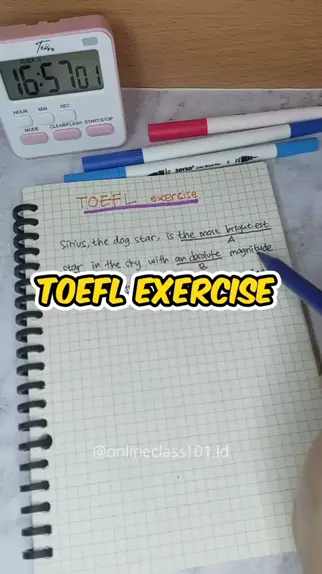 16:57 01
HOUR MIN SEC
MODE CLEAR/FLASH START/STOP
TOEFL exercise
Sirius, the dog star, is the most brightest
A
star in the sky with an absolute magnitude
B
TOEFL EXERCISE
@onlineclass101.id